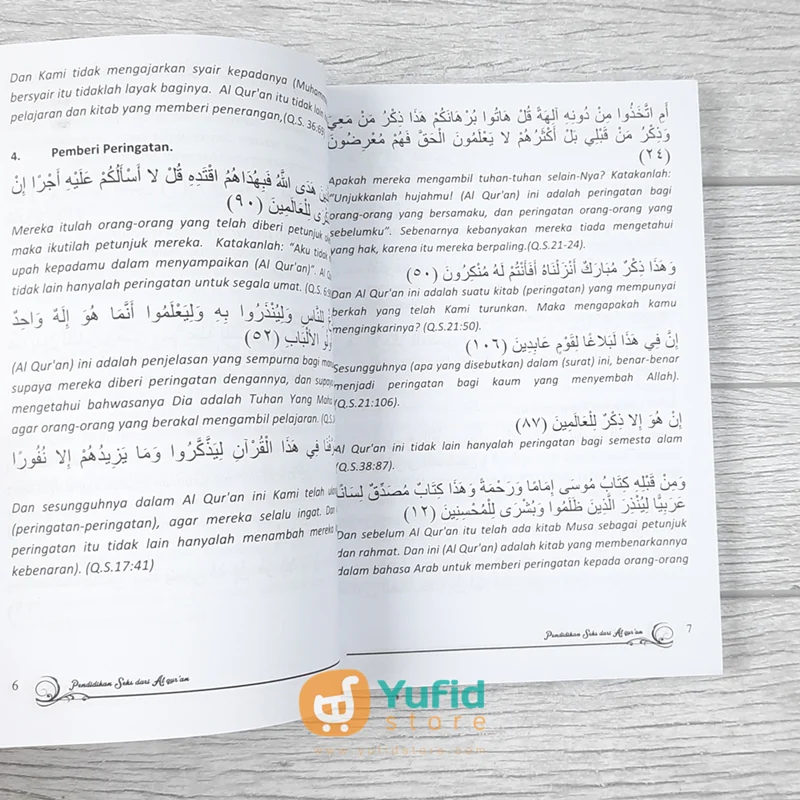 Dan Kami tidak mengajarkan syair kepadanya
bersyair itu tidaklah layak baginya. Al Qur'an itu tidak lain
pelajaran dan kitab yang memberi penerangan,(Q.S. 36:69)
4. Pemberi Peringatan.
هَدَى اللَّهُ فَبِهُدَاهُمُ اقْتَدِهِ قُلْ لا أَسْأَلُكُمْ عَلَيْهِ أَجْرًا إِنْ
لِلْعَالَمِينَ (٩٠)
Mereka itulah orang-orang yang telah diberi petunjuk
maka ikutilah petunjuk mereka. Katakanlah: "Aku tidak
upah kepadamu dalam menyampaikan (Al Qur'an)".
tidak lain hanyalah peringatan untuk segala umat. (Q.S.
لِلنَّاسِ وَلِيُنْذَرُوا بِهِ وَلِيَعْلَمُوا أَنَّمَا هُوَ إِلَهٌ وَاحِدٌ
الألْبَابِ (٥٢)
(Al Qur'an) ini adalah penjelasan yang sempurna bagi
supaya mereka diberi peringatan dengannya, dan
mengetahui bahwasanya Dia adalah Tuhan Yang Maha
agar orang-orang yang berakal mengambil pelajaran.
فِي هَذَا الْقُرْآنِ لِيَذَّكَّرُوا وَمَا يَزِيدُهُمْ إِلا نُفُورًا
Dan sesungguhnya dalam Al Qur'an ini Kami telah
(peringatan-peringatan), agar mereka selalu ingat. Dan
peringatan itu tidak lain hanyalah menambah mereka
kebenaran). (Q.S.17:41)
6 Pendidikan Seks dari Al qur'an
أَمِ اتَّخَذُوا مِنْ دُونِهِ آلِهَةً قُلْ هَاتُوا بُرْهَانَكُمْ هَذَا ذِكْرُ مَنْ مَعِيَ
وَذِكْرُ مَنْ قَبْلِي بَلْ أَكْثَرُهُمْ لا يَعْلَمُونَ الْحَقَّ فَهُمْ مُعْرِضُونَ
(٢٤)
Apakah mereka mengambil tuhan-tuhan selain-Nya? Katakanlah:
"Unjukkanlah hujahmu! (Al Qur'an) ini adalah peringatan bagi
orang-orang yang bersamaku, dan peringatan orang-orang yang
sebelumku". Sebenarnya kebanyakan mereka tiada mengetahui
yang hak, karena itu mereka berpaling.(Q.S.21-24).
وَهَذَا ذِكْرٌ مُبَارَكٌ أَنْزَلْنَاهُ أَفَأَنْتُمْ لَهُ مُنْكِرُونَ (٥٠)
Dan Al Qur'an ini adalah suatu kitab (peringatan) yang mempunyai
berkah yang telah Kami turunkan. Maka mengapakah kamu
mengingkarinya? (Q.S.21:50).
إِنَّ فِي هَذَا لَبَلاغًا لِقَوْمٍ عَابِدِينَ (١٠٦)
Sesungguhnya (apa yang disebutkan) dalam (surat) ini, benar-benar
menjadi peringatan bagi kaum yang menyembah Allah).
(Q.S.21:106).
إِنْ هُوَ إِلا ذِكْرٌ لِلْعَالَمِينَ (٨٧)
Al Qur'an ini tidak lain hanyalah peringatan bagi semesta alam
(Q.S.38:87).
وَمِنْ قَبْلِهِ كِتَابُ مُوسَى إِمَامًا وَرَحْمَةً وَهَذَا كِتَابٌ مُصَدِّقٌ لِسَانًا
عَرَبِيًّا لِيُنْذِرَ الَّذِينَ ظَلَمُوا وَبُشْرَى لِلْمُحْسِنِينَ (١٢)
Dan sebelum Al Qur'an itu telah ada kitab Musa sebagai petunjuk
dan rahmat. Dan ini (Al Qur'an) adalah kitab yang membenarkannya
dalam bahasa Arab untuk memberi peringatan kepada orang-orang
Pendidikan Seks dari Al qur'an 7
Yufid
store
www.yufidstore.com